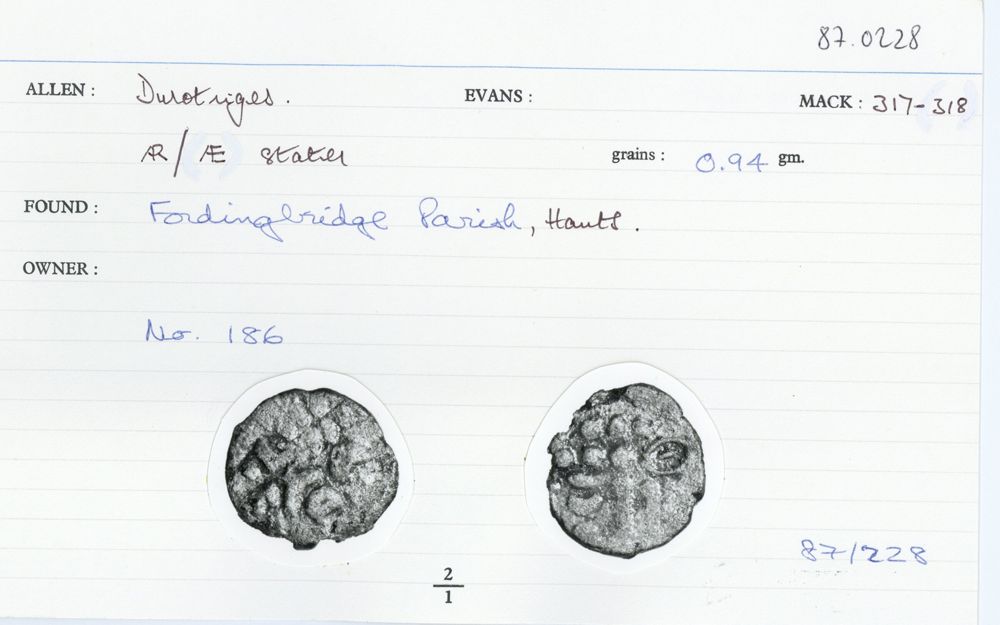 87.0228
ALLEN : Durotriges. EVANS : MACK : 317-318
AR/Æ stater grains : 0.94 gm.
FOUND : Fordingbridge Parish, Hants.
OWNER :
No. 186
87/228
2
1